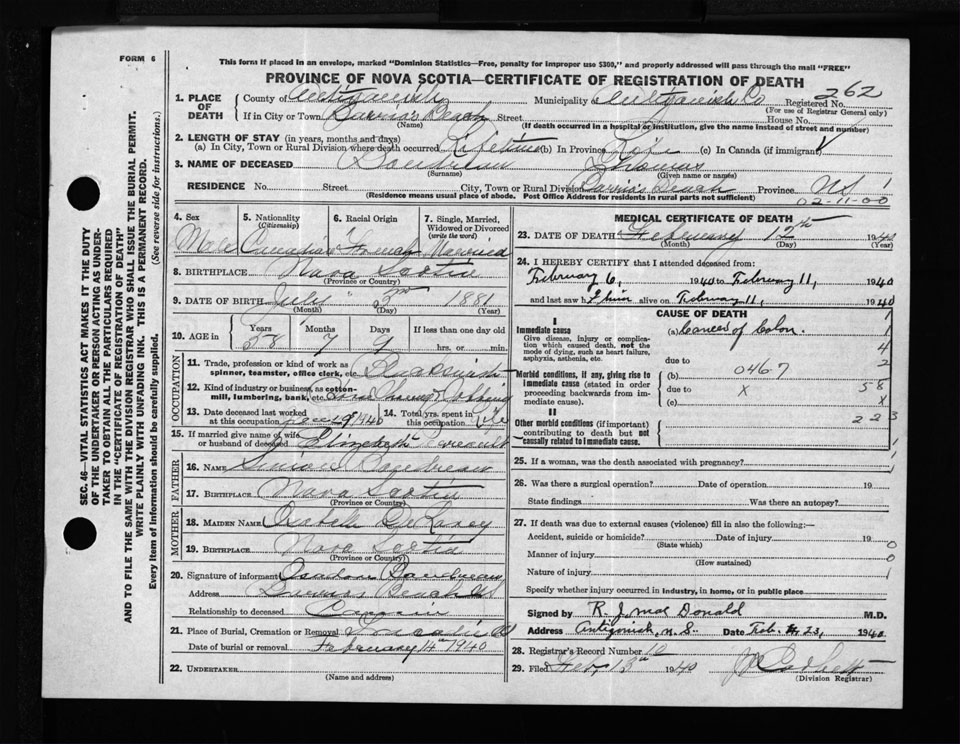 FORM 6
This form if placed in an envelope, marked "Dominion Statistics—Free, penalty for improper use $300," and properly addressed will pass through the mail "FREE"
PROVINCE OF NOVA SCOTIA—CERTIFICATE OF REGISTRATION OF DEATH
262
1. PLACE OF DEATH
County of Antigonish Municipality of Antigonish Co Registered No.
(For use of Registrar General only)
If in City or Town Beach Street House No.
(Name) (If death occurred in a hospital or institution, give the name instead of street and number)
2. LENGTH OF STAY (in years, months and days)
(a) In City, Town or Rural Division where death occurred Lifetime (b) In Province Life (c) In Canada (if immigrant)
3. NAME OF DECEASED Boudreau Thomas
(Surname) (Given name or names)
RESIDENCE No. Street City, Town or Rural Division Beach Province NS
(Residence means usual place of abode. Post Office Address for residents in rural parts not sufficient)
02-11-00
4. Sex 5. Nationality (Citizenship) 6. Racial Origin 7. Single, Married, Widowed or Divorced (write the word)
Male Canadian French Married
8. BIRTHPLACE Nova Scotia
(Province or Country)
9. DATE OF BIRTH July 3rd 1881
(Month) (Day) (Year)
10. AGE in Years Months Days If less than one day old
58 7 9 hrs. or min.
OCCUPATION
11. Trade, profession or kind of work as spinner, teamster, office clerk, etc.
12. Kind of industry or business, as cotton-mill, lumbering, bank, etc.
13. Date deceased last worked at this occupation 1940 14. Total yrs. spent in this occupation Life
15. If married give name of wife or husband of deceased Elizabeth
FATHER
16. NAME Boudreau
17. BIRTHPLACE Nova Scotia
(Province or Country)
MOTHER
18. MAIDEN NAME
19. BIRTHPLACE Nova Scotia
(Province or Country)
20. Signature of informant Boudreau
Address Beach NS
Relationship to deceased Cousin
21. Place of Burial, Cremation or Removal
Date of burial or removal February 14th 1940
22. UNDERTAKER
(Name and address)
MEDICAL CERTIFICATE OF DEATH
23. DATE OF DEATH February 12th 1940
(Month) (Day) (Year)
24. I HEREBY CERTIFY that I attended deceased from:
February 6, 1940 to February 11, 1940
and last saw him alive on February 11, 1940
CAUSE OF DEATH
I
Immediate cause (a) Cancer of Colon.
Give disease, injury or complication which caused death, not the mode of dying, such as heart failure, asphyxia, asthenia, etc.
due to
Morbid conditions, if any, giving rise to immediate cause (stated in order proceeding backwards from immediate cause).
(b) 046-7
due to X
(c)
5-8
X
II
Other morbid conditions (if important) contributing to death but not causally related to immediate cause.
2 2 3
25. If a woman, was the death associated with pregnancy?
26. Was there a surgical operation? Date of operation 19
State findings Was there an autopsy?
27. If death was due to external causes (violence) fill in also the following:—
Accident, suicide or homicide? Date of injury 19
(State which)
Manner of injury
(How sustained)
Nature of injury
Specify whether injury occurred in industry, in home, or in public place
Signed by R. J. Mac Donald M.D.
Address Antigonish, N.S. Date Feb. 23, 1940
28. Registrar's Record Number 10
29. Filed Feb, 13th 1940
(Division Registrar)
SEC. 46—VITAL STATISTICS ACT MAKES IT THE DUTY
OF THE UNDERTAKER OR PERSON ACTING AS UNDER-
TAKER TO OBTAIN ALL THE PARTICULARS REQUIRED
IN THE "CERTIFICATE OF REGISTRATION OF DEATH"
AND TO FILE THE SAME WITH THE DIVISION REGISTRAR WHO SHALL ISSUE THE BURIAL PERMIT.
WRITE PLAINLY WITH UNFADING INK. THIS IS A PERMANENT RECORD.
Every item of information should be carefully supplied. (See reverse side for instructions.)